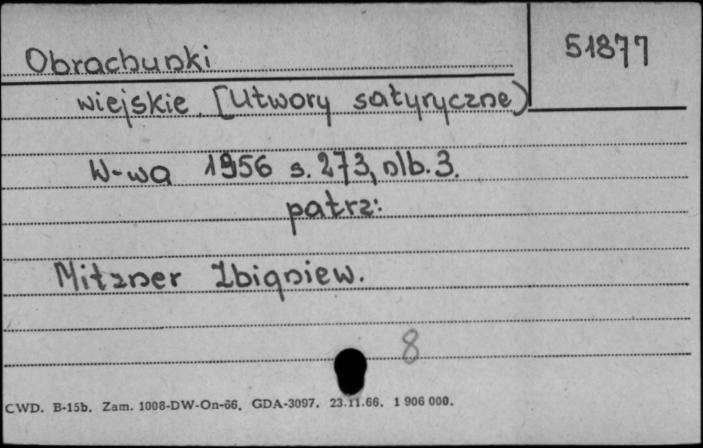 Obrachunki
51877
wiejskie. [Utwory satyryczne)
W-wa 1956 s. 273, nlb. 3.
patrz:
Mitzner Zbigniew.
8
CWD. B-15b. Zam. 1008-DW-On-66. GDA-3097. 23.11.66. 1 906 000.